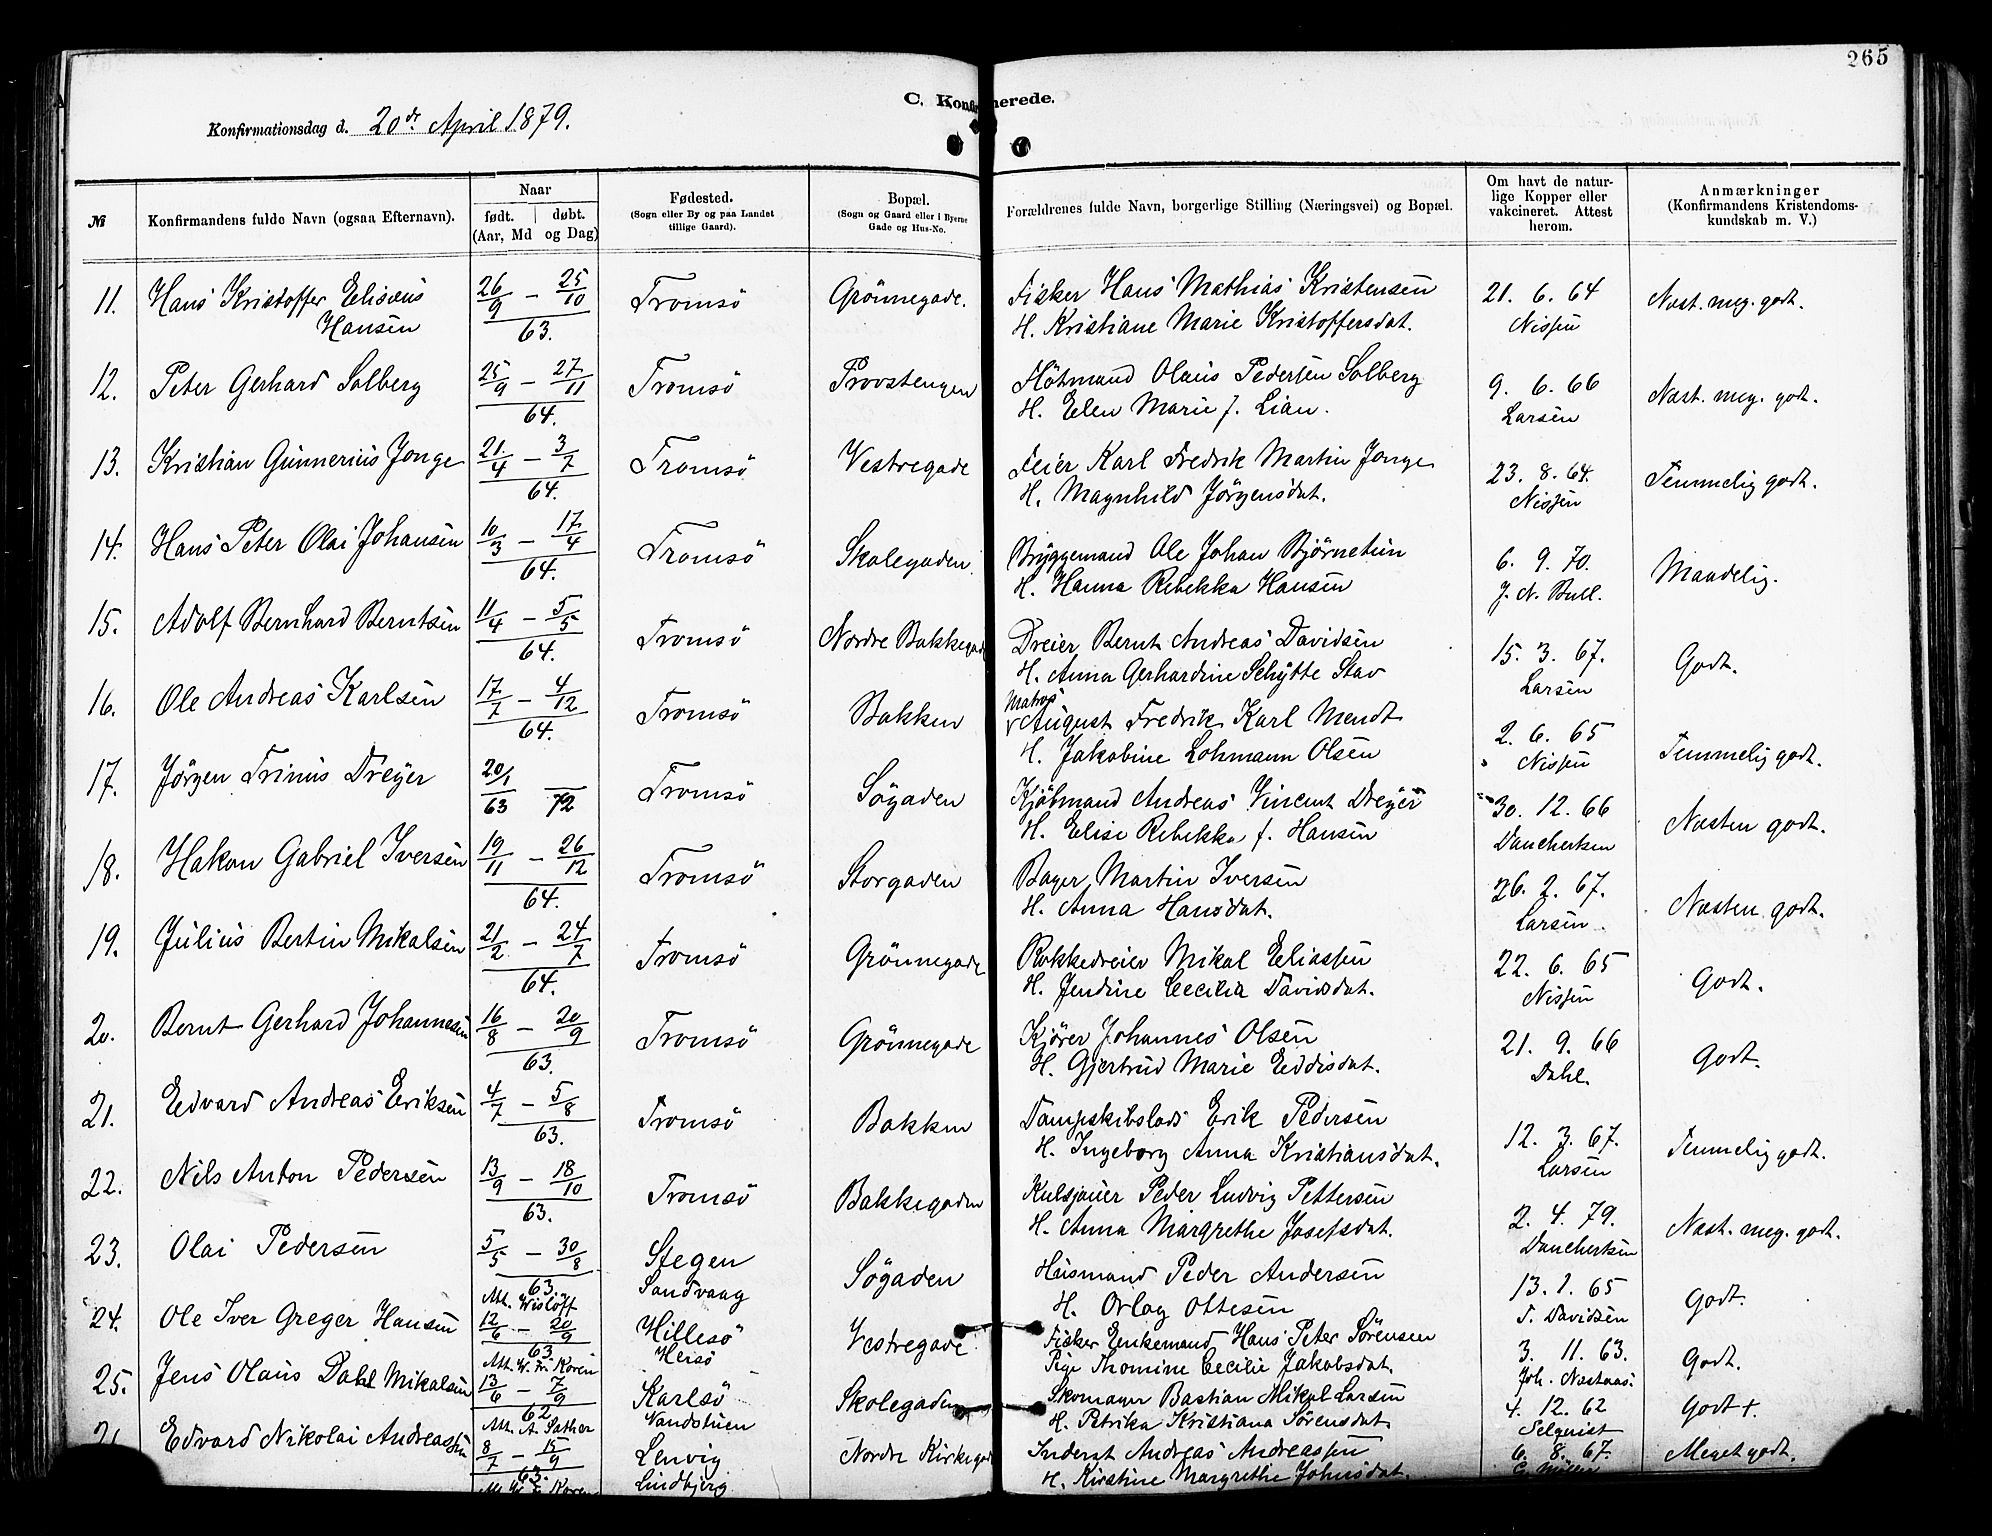 265
C. Konfirmerede.
Konfirmationsdag d. 20de April 1879.
№
Konfirmandens fulde Navn (ogsaa Efternavn).
Naar
født. | døbt.
(Aar, Md og Dag)
Fødested.
(Sogn eller By og paa Landet
tillige Gaard).
Bopæl.
(Sogn og Gaard eller i Byerne
Gade og Hus-No.
Forældrenes fulde Navn, borgerlige Stilling (Næringsvei) og Bopæl.
Om havt de natur-
lige Kopper eller
vakcineret. Attest
herom.
Anmærkninger
(Konfirmandens Kristendoms-
kundskab m. V.)
11. Hans Kristoffer Elisæus 26/9 – 25/10 Tromsö Grönnegade. Fisker Hans Mathias Kristensen 21. 6. 64 Næst. meg. godt.
Hansen 63. H. Kristiane Marie Kristoffersdat. Nissen
12. Peter Gerhard Solberg 25/9 – 27/11 Tromsö Provstengen Flötmand Olaus Pedersen Solberg 9. 6. 66 Næst. meg. godt.
64. H. Elen Marie f. Lian. Larsen
13. Kristian Gunnerius Jonge 21/4 – 3/7 Tromsö Vestregade Feier Karl Fredrik Martin Jonge 23. 8. 64. Temmelig godt.
64. H. Magnhild Jörgensdat. Nissen
14. Hans Peter Olai Johansen 10/3 – 17/4 Tromsö Skolegaden. Bryggemand Ole Johan Bjørnetun 6. 9. 70. Maadelig.
64. H. Hanna Rebekka Hansen J. N. Bull.
15. Adolf Bernhard Berntsen 11/4 – 5/5 Tromsö Nordre Bakkegade Dreier Bernt Andreas Davidsen 15. 3. 67. Godt.
64. H. Anna Gerhardine Schytte Stav Larsen
16. Ole Andreas Karlsen 17/7 – 4/12 Tromsö Bakken Matros August Fredrik Karl Mendt 2. 6. 65 Temmelig godt.
64. H. Jakobine Lohmann Olsen Nissen
17. Jörgen Trinus Dreyer 20/1 Tromsö Søgaden Kjöbmand Andreas Vincent Dreyer 30. 12. 66 Næsten godt.
63 72 H. Elise Rebekka f. Hansen Danchertsen
18. Hakon Gabriel Iversen 19/11 – 26/12 Tromsö Storgaden Bager Martin Iversen 26. 2. 67. Næsten godt.
64. H. Anna Hansdat. Larsen
19. Julius Bertin Mikalsen 21/2 – 24/7 Tromsö Grönnegade Rokkedreier Mikal Eliassen 22. 6. 65 Godt.
64. H. Jendine Cecilia Davidsdat. Nissen
20. Bernt Gerhard Johannesen 16/8 – 20/9 Tromsö Grönnegade Kjörer Johannes Olsen 21. 9. 66 Godt.
63. H. Gjertrud Marie Eddisdat. Dahl.
21. Edvard Andreas Eriksen 4/7 – 5/8 Tromsö Bakken Dampskibslods Erik Pedersen 12. 3. 67. Temmelig godt.
63. H. Ingeborg Anna Kristiansdat. Larsen
22. Nils Anton Pedersen 13/9 – 18/10 Tromsö Bakkegaden Kulsjauer Peder Ludvig Pettersen 2. 4. 79. Næst. meg. godt.
63. H. Anna Margrethe Josefsdat. Danchertsen
23. Olai Pedersen 5/5 – 30/8 Stegen Søgaden Husmand Peder Andersen 13. 1. 65 Godt.
63. Sandvaag H. Orlog Ottesen T. Davidsen
Att. Wisløff
24. Ole Iver Greger Hansen 12/6 – 20/9 Hillesö Vestregade Fisker Enkemand Hans Peter Sörensen 3. 11. 63. Godt.
63 Hersö Pige Thomine Cecilie Jakobsdat. Joh.
Att. W. Koren
25. Jens Olaus Dahl Mikalsen 13/6 – 7/9 Karlsö Skolegaden Skomager Bastian Mikal Larsen 4. 12. 62 Godt +.
62 Vandstuen H. Petrika Kristiana Sörensdat Selquist
Att. A. Sather
Edvard Nikolai Andreassen 8/7 – 15/9 Lenvig Nordre Kirkegad Inderst Andreas Andreassen 6. 8. 67. Meget godt.
63. Lindbjerg H. Kirstine Margrethe Johnsdat. Möller
Koren